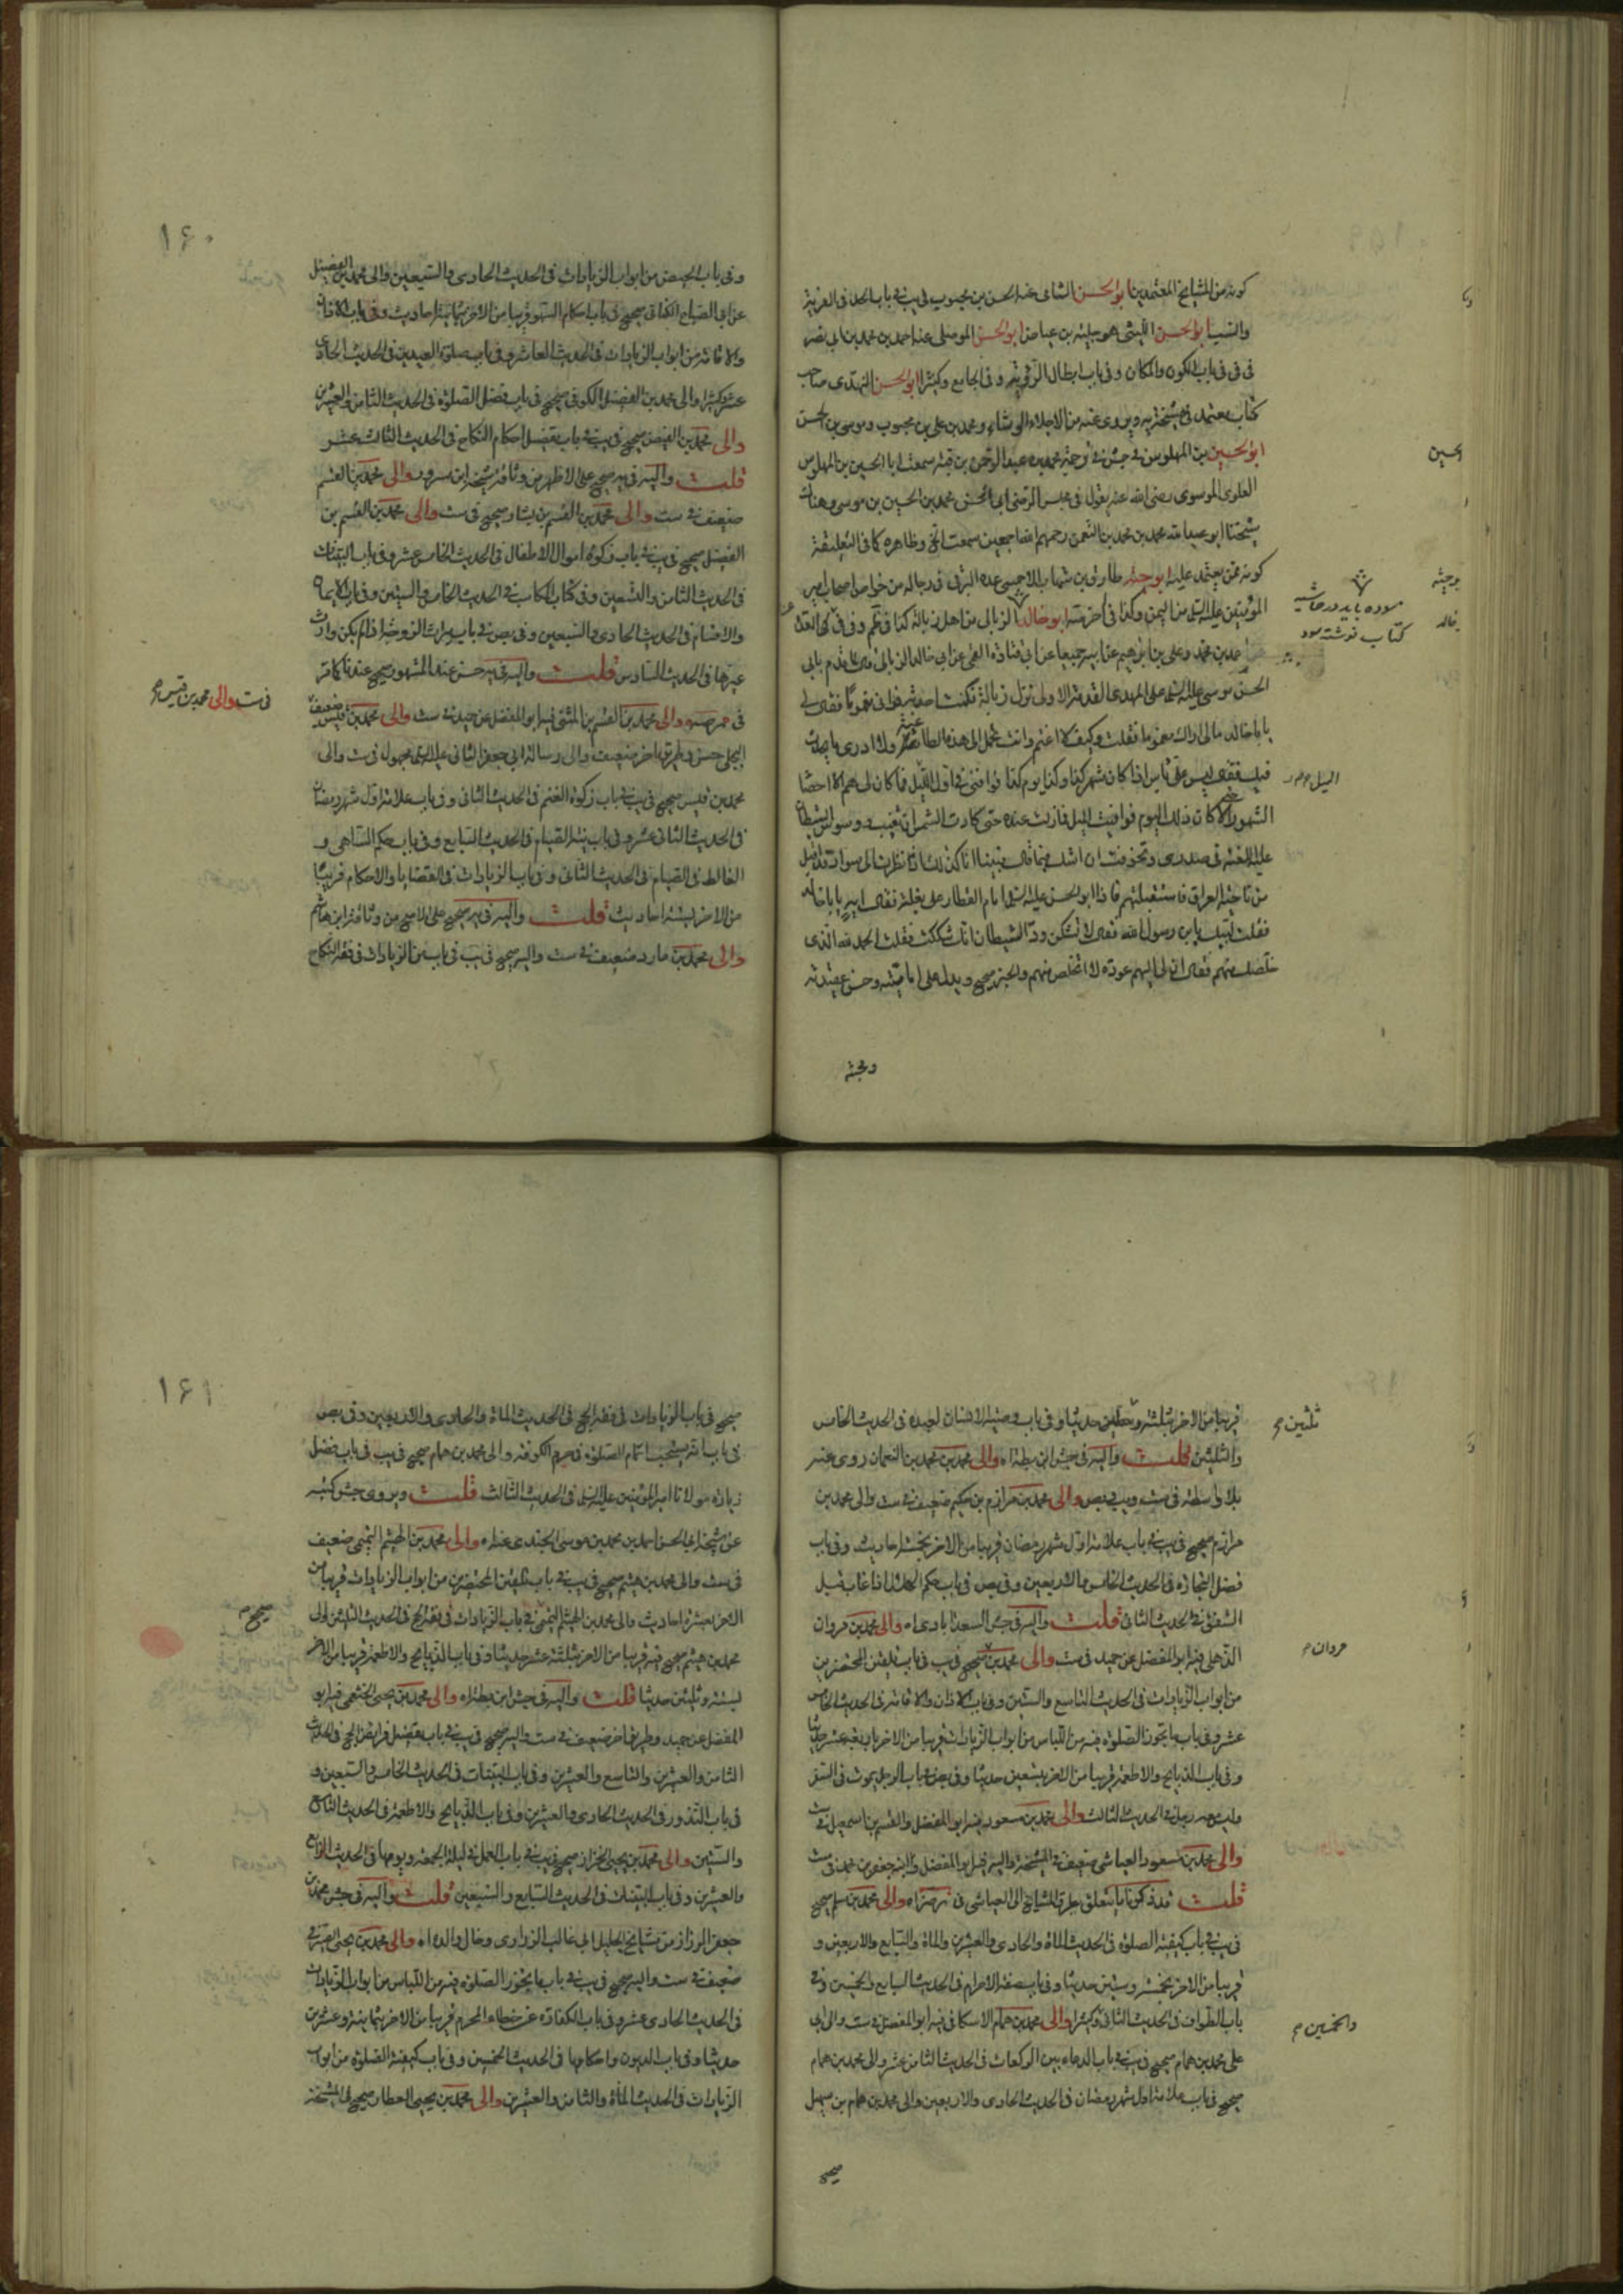 كونه من المشايخ المعتمدين ابو الحسن الشامى عنه الحسن بن محبوب فى يب فى باب الحد فى الفرية
والسب ابو الحسن الليثى هو جلبة بن عياض ابو الحسن الموصلى عنه احمد بن محمد بن ابى نصر
فى فى فى باب الكون والمكان وفى باب ابطال الرؤية وفى الجامع وكثيرا ابو الحسن النهدى صاحب
كتاب معتمد فى مشيخة يه ويروى عنه من الاجلاء الوشاء ومحمد بن على بن محبوب وموسى بن الحسن
ابو الحسين بن المهلوس فى جش فى ترجمة محمد بن عبد الرحمن بن قبة سمعت ابا الحسين بن المهلوس
العلوى الموسوى رضى الله عنه يقول فى مجلس الرضى ابى الحسن محمد بن الحسين بن موسى وهناك
شيخنا ابو عبد الله محمد بن محمد بن النعمن رحمهم الله اجمعين سمعت الخ وظاهره كما فى التعليقة
كونه ممن يعتمد عليه ابو حية طارق بن شهاب الاحمسى عده البرقى فى رجاله من خواص اصحاب امير
المؤمنين عليه السلم من اليمن وكذا فى اخر صه ابو خالد الزبالى من اهل زبالة كذا فى كم وفى فى
احمد بن محمد وعلى بن ابراهيم عن ابيه جميعا عن ابى قتادة القمى عن ابى خالد الزبالى قال لما قدم بابى
الحسن موسى عليه السلم على المهدى القدمة الاولى نزل زبالة فكنت احدثه فرانى مغموما فقال لى
يا با خالد مالى اراك مغموما فقلت وكيف لا اغتم وانت تحمل الى هذه الطاغية ولا ادرى ما يحدث
فيك فقال ليس على باس اذا كان شهر كذا وكذا يوم كذا فوافنى فى اول الليل فما كان لى هم الا احصاء
الشهور حتى كان ذلك اليوم فوافيت الميل فما زلت عنده حتى كادت الشمس ان تغيب ووسوس الشيطان
عليه اللعنة فى صدرى وتخوفت ان اشك فيما قال فبينا انا كذلك اذا نظرت الى سواد قد اقبل
من ناحية العراق فاستقبلتهم فاذا ابو الحسن عليه السلم امام القطار على بغلة فقال ايه يا با خالد
فقلت لبيك يا بن رسول الله فقال لا تشكن ود الشيطان انك شككت فقلت الحمد لله الذى
خلصك منهم فقال ان لى اليهم عودة لا اتخلص منهم والخبر صحيح ويدل على اماميته وحسن عقيدته
ومحبته
الحسين
بو حية
بخالد
سوده بايد در حاشيه
كتاب نوشته سود
الميل م
١۶٠
وفى باب الحيض من ابواب الزيادات فى الحديث الحادى والسبعين والى محمد بن الفضيل
عن ابى الصباح الكنانى صحيح فى باب احكام السهو قريبا من الاخر بثمانية احاديث وفى باب الاذان
والاقامة من ابواب الزيادات فى الحديث العاشر وفى باب صلوة العيدين فى الحديث الحادى
عشر وكثيرا والى محمد بن الفضيل الكوفى صحيح فى باب فضل الصلوة فى الحديث الثامن والعشرين
والى محمد بن الفيض صحيح فى يب فى باب تفصيل احكام النكاح فى الحديث الثالث عشر
قلت واليه فى يه صحيح على الاظهر من وثاقة شيخه ابن مسرور والى محمد بن القسم
ضعيف فى ست والى محمد بن القسم بن بشار صحيح فى ست والى محمد بن القسم بن
الفضيل صحيح فى يب فى باب زكوة اموال الاطفال فى الحديث الخامس عشر وفى باب البينات
فى الحديث الثامن والتسعين وفى كتاب المكاسب فى الحديث الخامس والستين وفى باب الايمان
والاقسام فى الحديث الحادى والسبعين وفى بص فى باب ميراث الزوجة اذا لم يكن وارث
غيرها فى الحديث السادس قلت واليه فى يه حسن عند المشهور صحيح عندنا كما مر
فى والى محمد بن القسم بن المثنى فيه ابو المفضل عن حميد فى ست والى محمد بن قيس ضعيف
البجلى حسن وطريق اخر ضعيف والى رسالة ابى جعفر الثانى عليه السلم مجهول فى ست والى
محمد بن قيس صحيح فى يب فى باب زكوة الغنم فى الحديث الثانى وفى باب علامة اول شهر رمضان
فى الحديث الثانى عشر وفى باب نية الصيام فى الحديث السابع وفى باب حكم الساهى و
الغالط فى الصيام فى الحديث الثانى وفى باب الزيادات فى القضايا والاحكام قريبا
من الاخر بستة احاديث قلت واليه فى يه صحيح على الاصح من وثاقة ابن هاشم
والى محمد بن مارد ضعيف فى ست واليه صحيح فى يب فى باب من الزيادات فى فقه النكاح
فى ست والى محمد بن قيس م
قريبا من الاخر بثلثة وثلثين حديثا وفى باب وصية الانسان لعبده فى الحديث الخامس
والثلثين قلت واليه فى جش ابن بطة اه والى محمد بن محمد بن النعمان روى عنه
بلا واسطة فى ست ويب وبص والى محمد بن مرازم بن حكيم ضعيف فى ست والى محمد بن
مرازم صحيح فى يب فى باب علامة اول شهر رمضان قريبا من الاخر بخمسة احاديث وفى باب
فضل التجارة فى الحديث الخامس والاربعين وفى بص فى باب حكم الهلال اذا غاب قبل
الشفق فى الحديث الثانى قلت واليه فى جش السعدابادى اه والى محمد بن مروان
الذهلى فيه ابو المفضل عن حميد فى ست والى محمد بن صحيح فى يب فى باب تلقين المحتضرين
من ابواب الزيادات فى الحديث التاسع والستين وفى باب الاذان والاقامة فى الحديث الخامس
عشر وفى باب ما تجوز الصلوة فيه من اللباس من ابواب الزيادات قريبا من الاخر باربعة عشر حديثا
وفى باب الذبايح والاطعمة قريبا من الاخر بتسعين حديثا وفى بص فى باب الرجل يموت فى السفر
وليس معه رجل فى الحديث الثالث والى محمد بن مسعود فيه ابو المفضل والقسم بن اسمعيل فى ست
والى محمد بن مسعود العياشى ضعيف فى المشيخة واليه فيه ابو المفضل وابنه جعفر بن محمد فى ست
قلت قد ذكرنا ما يتعلق بطرق المشايخ الى العياشى فى والى محمد بن مسلم صحيح
فى يب فى باب كيفية الصلوة فى الحديث المأة والحادى والعشرين والمأة والسابع والاربعين و
قريبا من الاخر بخمسة وستين حديثا وفى باب صفة الاحرام فى الحديث السابع والخمسين وفى
باب الطواف فى الحديث الثانى وكثيرا والى محمد بن همام الاسكافى فيه ابو المفضل فى ست والى ابى
على محمد بن همام صحيح فى يب فى باب الدعاء بين الركعات فى الحديث الثامن عشر والى محمد بن همام
صحيح فى باب علامة اول شهر رمضان فى الحديث الحادى والاربعين والى محمد بن همام بن سهيل
صحيح
ثلثين م
مروان م
والخمسين م
١۶١
صحيح فى باب الزيادات فى فقه الحج فى الحديث المأة والحادى والاربعين وفى بص
فى باب انه يستحب اتمام الصلوة فى حرم الكوفة والى محمد بن همام صحيح فى يب فى باب فضل
زيارة مولانا امير المؤمنين عليه السلم فى الحديث الثالث قلت ويروى جش كتبه
عن شيخه ابى الحسن احمد بن محمد بن موسى الجندى عنه اه والى محمد بن الهيثم التميمى ضعيف
فى ست والى محمد بن هيثم صحيح فى يب فى باب تلقين المحتضرين من ابواب الزيادات قريبا من
الاخر بعشرة احاديث والى محمد بن الهيثم التميمى فى باب الزيادات فى فقه الحج فى الحديث الثلثين والى
محمد بن هيثم صحيح فيه قريبا من الاخر بثلثة عشر حديثا وفى باب الذبايح والاطعمة قريبا من الاخر
بستة وثلثين حديثا قلت واليه فى جش ابن بطة اه والى محمد بن يحيى الخثعمى فيه ابو
المفضل عن حميد وطريق اخر ضعيف فى ست واليه صحيح فى يب فى باب تفصيل فرائض الحج فى الحديث
الثامن والعشرين والتاسع والعشرين وفى باب البينات فى الحديث الخامس والسبعين و
فى باب النذور فى الحديث الحادى والعشرين وفى باب الذبايح والاطعمة فى الحديث التاسع
والستين والى محمد بن يحيى الخزاز صحيح فى يب فى باب العمل فى ليلة الجمعة ويومها فى الحديث الرابع
والعشرين وفى باب البينات فى الحديث السابع والسبعين قلت واليه فى جش محمد بن
جعفر الرزاز من مشايخ الجليل ابى غالب الزرارى وخال والده اه والى محمد بن يحيى الصيرفى
ضعيف فى ست واليه صحيح فى يب فى باب ما يجوز الصلوة فيه من اللباس من ابواب الزيادات
فى الحديث الحادى عشر وفى باب الكفارة عن خطاء المحرم قريبا من الاخر بثمانية وعشرين
حديثا وفى باب الديون واحكامها فى الحديث الخمسين وفى باب كيفية الصلوة من ابواب
الزيادات فى الحديث المأة والثامن والعشرين والى محمد بن يحيى العطار صحيح فى المشيخة
صحيح م